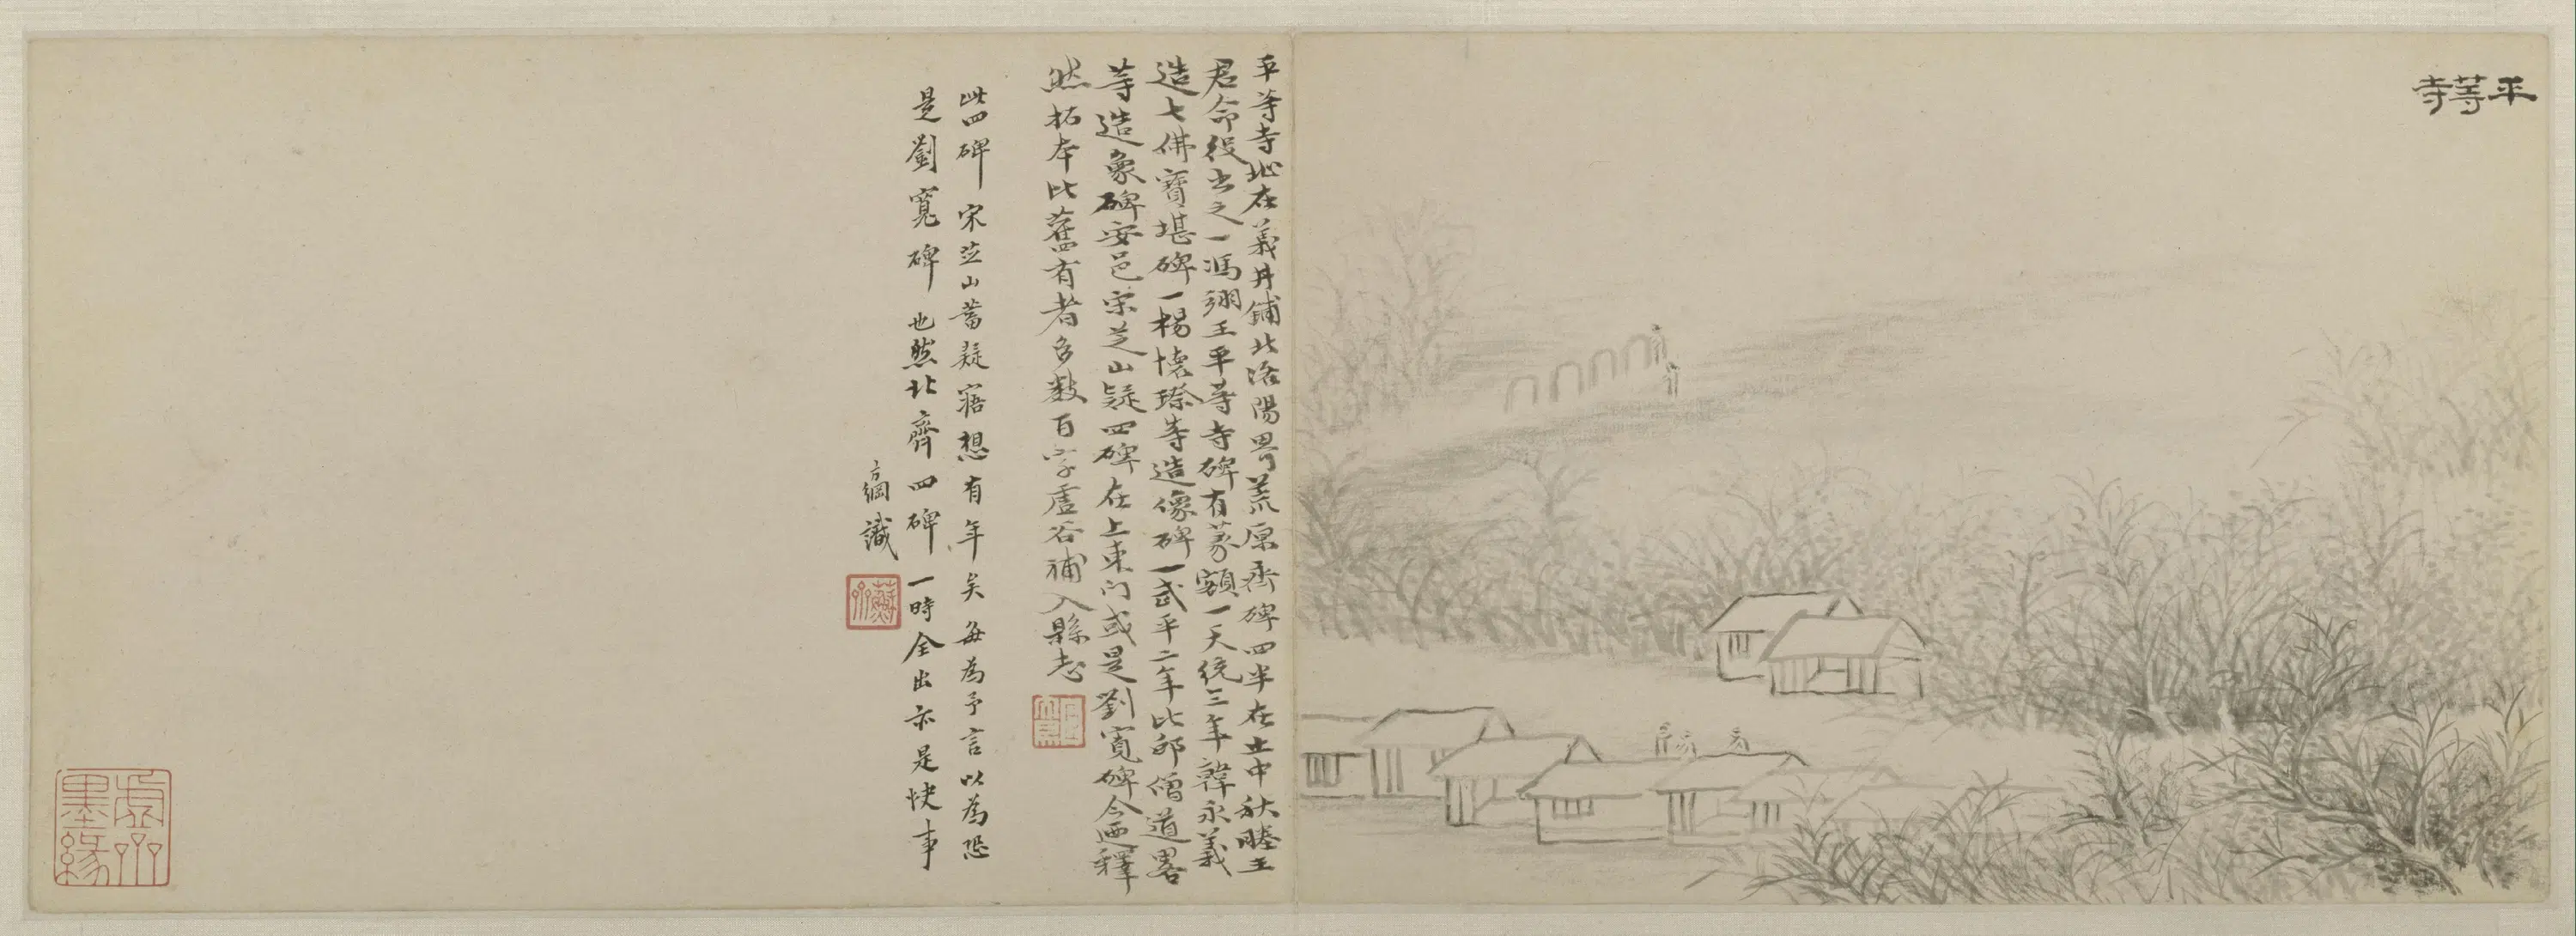 平等寺
平等寺址在義井鋪北洛陽界荒原齊碑四半在土中秋塍主
君命役出之一馮翊王平等寺碑有篆額一天統三年韓永義
造七佛寶堪碑一楊懷璨等造像碑一武平二年比邱僧道畧
等造象碑安邑宋芝山疑四碑在上東门或是劉寬碑今迺釋
然拓本比舊有者多數百字虛谷補入縣志
此四碑宋芝山蓄疑寤想有年矣每為予言以為恐
是劉寬碑也然北齊四碑一時全出亦是快事
方綱識
蘇
虛谷
墨緣